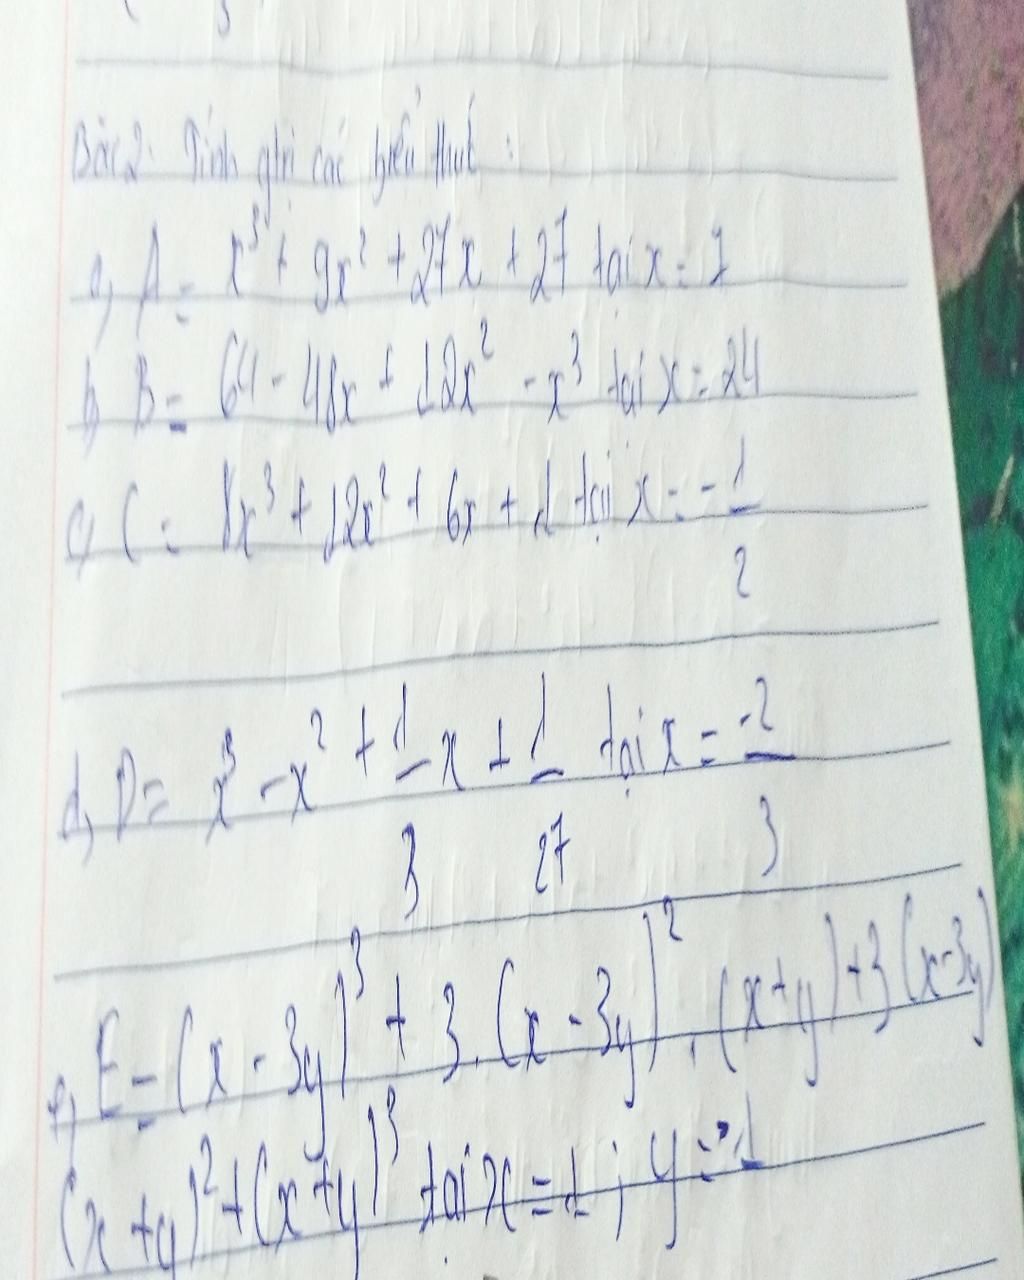 Bài 2: Tính gtri các biểu thức:
a, A = x³ + 9x² + 27x + 27 tại x = 7
b, B = 64 - 48x + 12x² - x³ tại x = 24
c, C = 8x³ + 12x² + 6x + 1 tại x = -1/2
d, D = x³ - x² + 1/3 x + 1/27 tại x = -2/3
e, E = (x - 3y)³ + 3.(x - 3y)².(x + y) + 3(x - 3y)
(x + y)² + (x + y)³ tại x = 1; y = -1